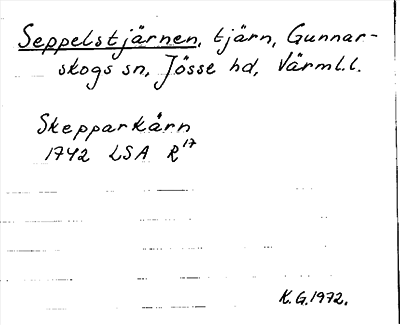 Seppelstjärnen, tjärn, Gunnar-
skogs sn, Jösse hd, Värml.l.
Skepparkärn
1742 LSA R17
K.G.1972.